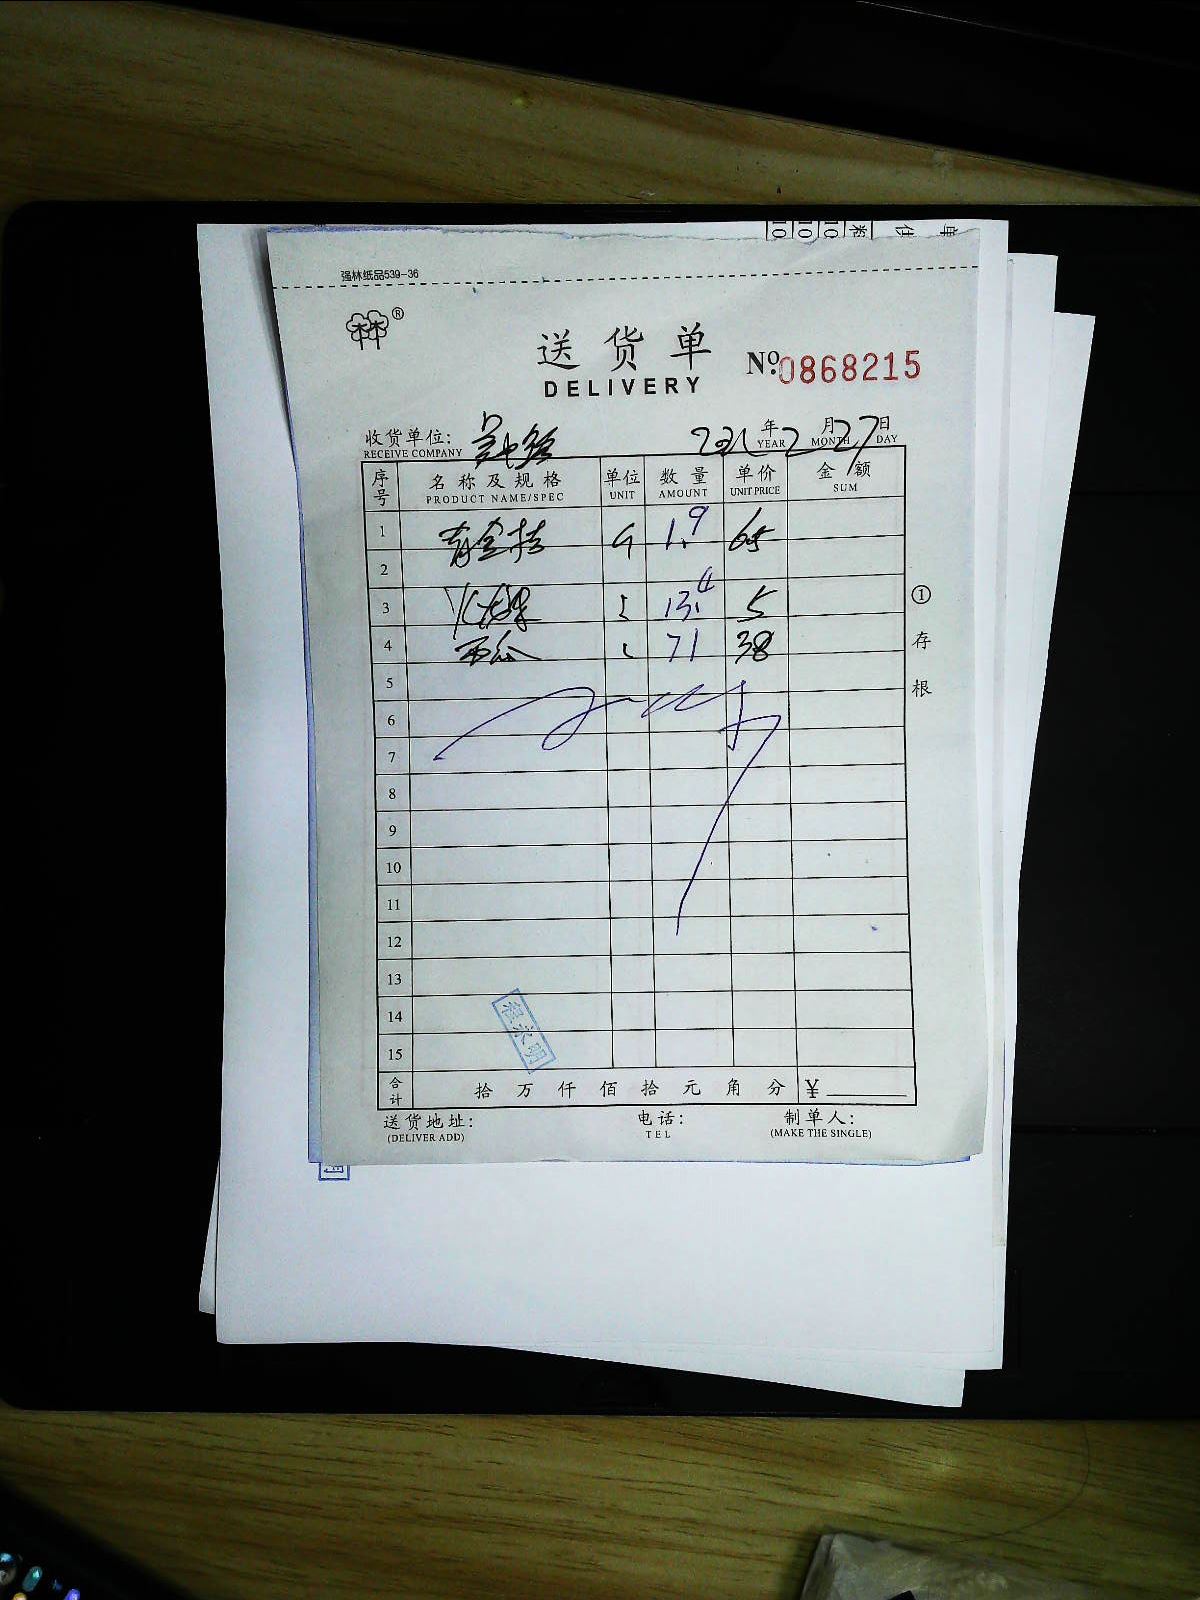 强林纸品539-36
林林®
送货单
DELIVERY
№:0868215
收货单位:
RECEIVE COMPANY
年 2 月 27 日
YEAR MONTH DAY
序号 名称及规格 单位 数量 单价 金额
PRODUCT NAME/SPEC UNIT AMOUNT UNIT PRICE SUM
1 青金桔 斤 1.9 65
2
3 火龙果 13.4 5
4 西瓜 71 38
5
6
7
8
9
10
11
12
13
14
15
①存根
永明
合计 拾 万 仟 佰 拾 元 角 分 ¥
送货地址: 电话: 制单人:
(DELIVER ADD) TEL (MAKE THE SINGLE)